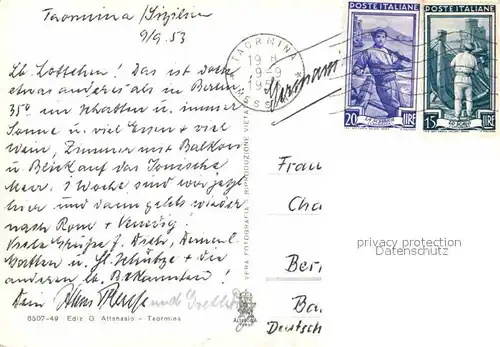 Taormina / Sizilien
9/9.53
Lb. Lottchen! Das ist doch
etwas anderes als in Berlin
35° im Schatten u. immer
Sonne u. viel Essen + viel
Wein, Zimmer mit Balkon
u. Blick auf das Jonische
Meer. 1 Woche sind wir jetzt
hier und dann gehts wieder
nach Rom + Venedig!
Viele Grüsse f. Dich, Deinen l.
Gatten u. H. Schultze + die
anderen lb. Bekannten!
Dein Hans
und
8507-49 Ediz. G. Attanasio - Taormina
VERA FOTOGRAFIA - RIPRODUZIONE VIETATA
TAORMINA
MESSINA
Germania
POSTE ITALIANE
20 LIRE
POSTE ITALIANE
15 LIRE
Frau
Cha
Ber
Ba
Deutsch
privacy protection
Datenschutz